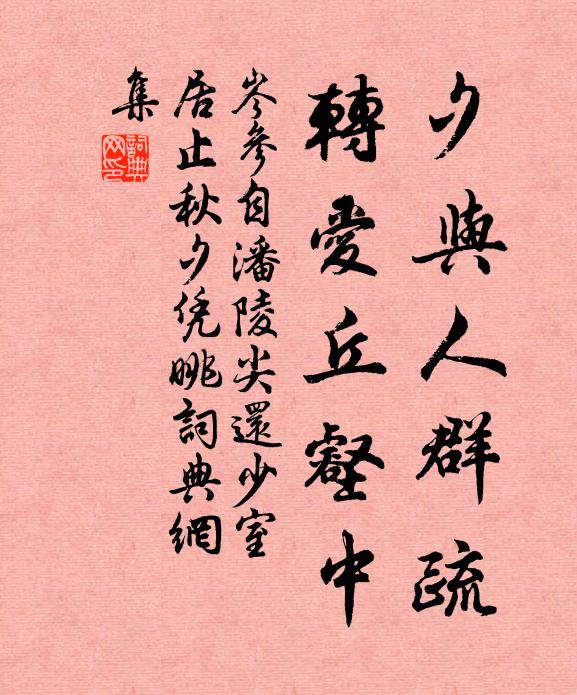 夕與人群疏
轉愛丘壑中
岑參自潘陵尖還少室
居止秋夕凭眺詞典網
集
詞典
网印